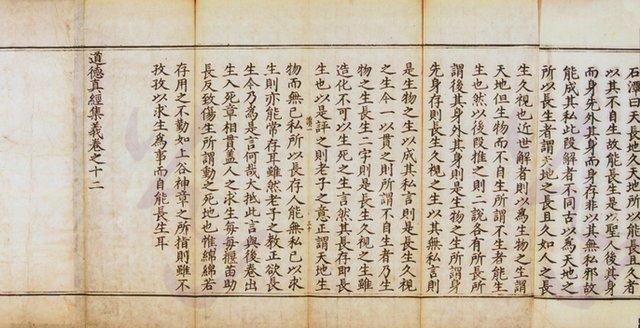 石潭曰天長地久天地所以能長且久者
以其不自生故能長生是以聖人後其身
而身先外其身而身存非以其無私邪故
能成其私此段解者不同古以為天地之
所以長生者謂天地之長且久如人之長
生久視也近世解者則以為生物之生謂
天地但生物而不自生所謂不生者能生
生也然以後段推之則二說各有所長所
謂後其身外其身則是生物之生所謂身
先身存則長生久視之生以其無私言則
是生物之生以成其私言則是長生久視
之生今一以貫之則所謂不自生者乃生
物之生長生二字則是長生久視之生雖
造化不可以生死之生言然其長存即長
生也以是評之則老子之意正謂天地生
物而無己私所以長存人能無私己以求
生則亦能常存耳雖然老子之教正欲長
生今乃為是言何哉大抵此言與後卷出
生入死章相貫蓋人之求生每每揠苗助
長反致傷生所謂動之死地也惟綿綿若
存用之不勤如上谷神章之所指則雖不
孜孜以求生為事而自能長生耳
道德真經集義卷之十二